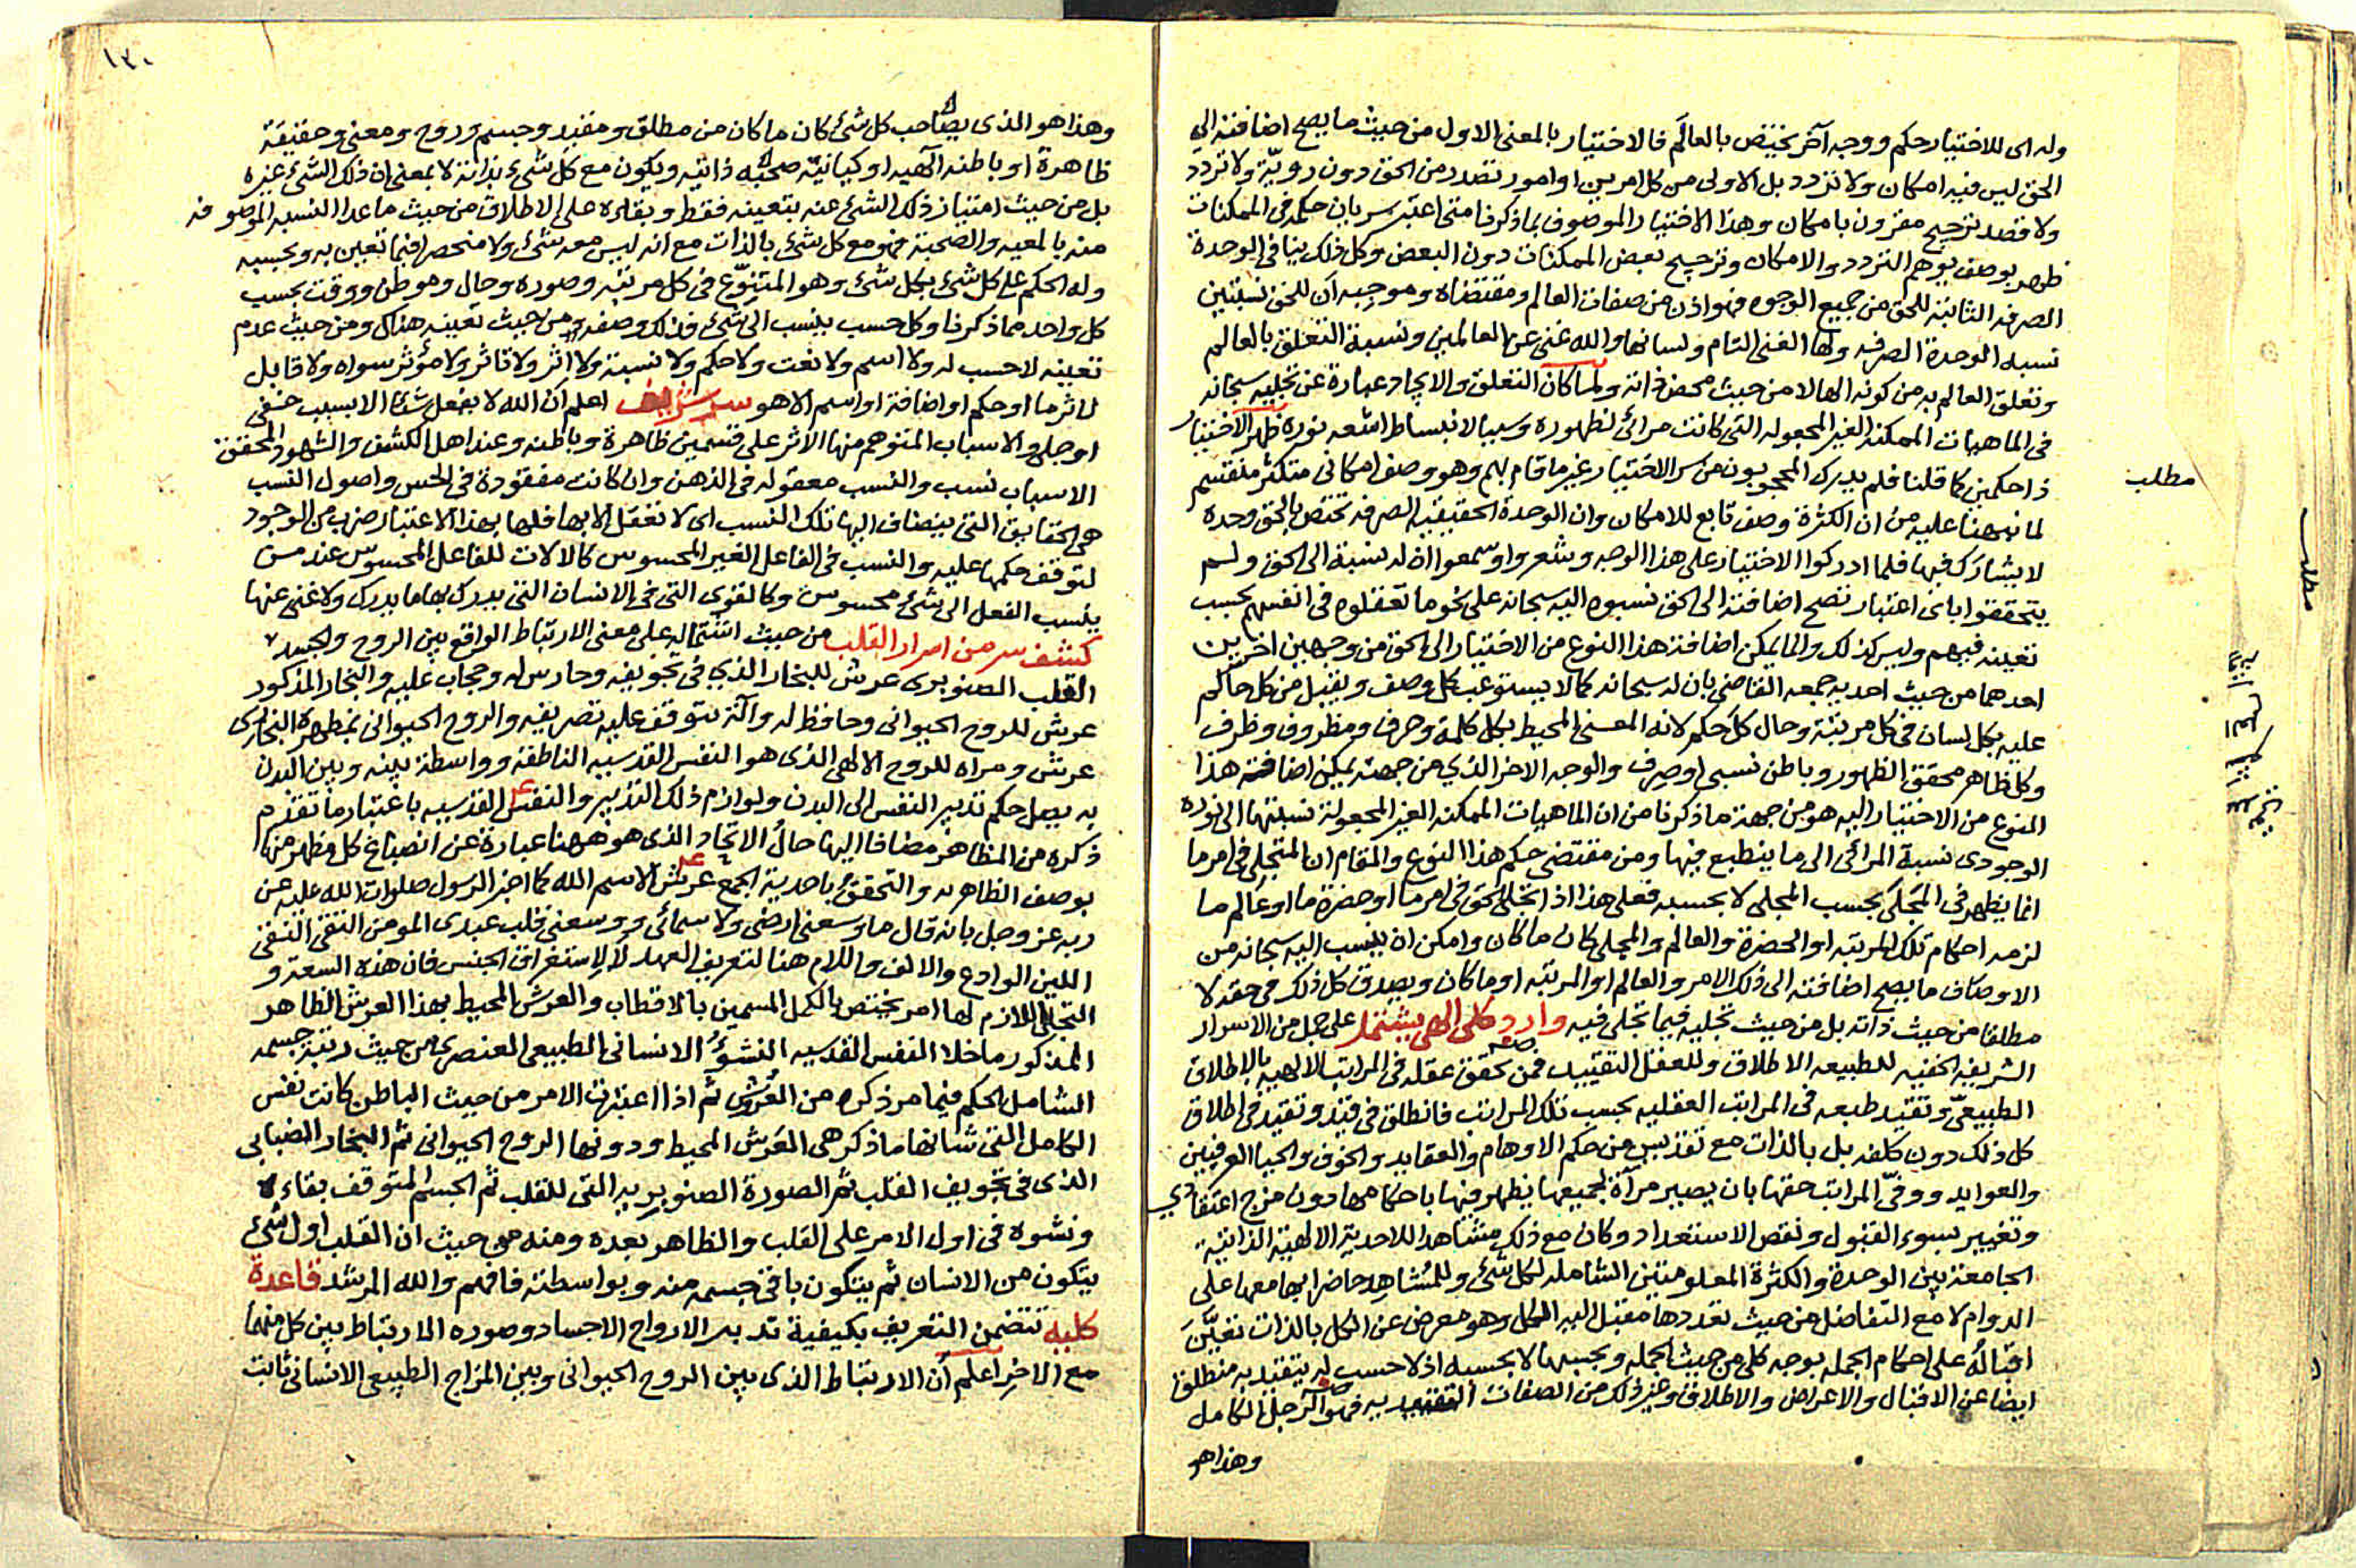 وله اى للاختيار حكم ووجه آخر يختص بالعالم فالاختيار بالمعنى الاول من حيث ما يصح اضافته الى
الحق ليس فيه امكان ولا تردد بل الاولى من كل امرين او امور تصدر من الحق دون رويّة ولا تردد
ولا قصد ترجيح مقرون بامكان وهذا الاختيار الموصوف بما ذكرنا متى اعتبر سريان حكمه فى الممكنات
ظهر بوصف يوهم التردد والامكان وترجيح بعض الممكنات دون البعض وكل ذلك ينافى الوحدة
الصرفه الثابتة للحق من جميع الوجوه فهو اذن من صفات العالم ومقتضاه وموجبه ان للحق نسبتين
نسبه الوحدة الصرفه ولها الغنى التام ولسانها والله غنى عن العالمين ونسبة التعلق بالعالم
وتعلق العالم به من كونه الها لا من حيث محض ذاته ولما كان التعلق والايجاد عبارة عن تجليه سبحانه
فى الماهيات الممكنه الغير المجعوله التى كانت مرائى لظهوره وسببا لانبساط اشعه نوره ظهر الاختيار
ذا حكمين كما قلنا فلم يدرك المحجوبون من سر الاختيار غير ما قام بهم وهو وصف امكانى متكثر منقسم
لما نبهنا عليه من ان الكثرة وصف تابع للامكان وان الوحدة الحقيقيه الصرفه تختص بالحق وحده
لا يشارك فيها فلما ادركوا الاختيار على هذا الوجه وشعروا او سمعوا ان له نسبة الى الحق ولم
يتحققوا باى اعتبار تصح اضافته الى الحق نسبوه اليه سبحانه على نحو ما تعقلوه فى انفسهم بحسب
تعينه فيهم وليس كذلك وانما يمكن اضافة هذا النوع من الاختيار الى الحق من وجهين اخرين
احدهما من حيث احديه جمعه القاضى بان له سبحانه كمالا يستوعب كل وصف ويقبل من كل حاكم
عليه بكل لسان فى كل مرتبة وحال كل حكم لانه المعنى المحيط بكل كلمة وحرف ومظروف وظرف
وكل ظاهر محقق الظهور وباطن نسبى او صرف والوجه الاخر الذي من جهته يمكن اضافته هذا
النوع من الاختيار اليه هو من جهة ما ذكرنا من ان الماهيات الممكنه الغير المجعولة نسبتها الى نوره
الوجودى نسبة المرائى الى ما ينطبع فيها ومن مقتضى حكم هذا النوع والمقام ان المتجلى فى امر ما
انما يظهر فى المجلى بحسب المجلى لا بحسبه فعلى هذا اذا تجلى الحق فى امر ما او حضرة ما او عالم ما
لزمه احكام تلك المرتبه او الحضرة والعالم والمجلى كان ما كان وامكن ان ينسب اليه سبحانه من
الاوصاف ما يصح اضافته الى ذلك الامر والعالم او المرتبه او ما كان ويصدق كل ذلك فى حقه لا
مطلقا من حيث ذاته بل من حيث تجليه فيما تجلى فيه وارد كلى الهى يشتمل على جمل من الاسرار
الشريفه الخفيه للطبيعه الاطلاق وللعقل التقييد فمن تحقق عقله فى المراتب الالهيه بالاطلاق
الطبيعىّ وتقيد طبعه فى المراتب العقليه بحسب تلك المراتب فانطلق فى قيد وتقيد فى اطلاق
كل ذلك دون كلفه بل بالذات مع تقديس من حكم الاوهام والعقايد والخوف والحيا العرفيين
والعوايد ووفىّ المراتب حقها بان يصير مرآة لجميعها يظهر فيها باحكامها دون مزج اعتقادي
وتغيير بسوء القبول ونقص الاستعداد وكان مع ذلك مشاهدا للاحدية الالهية الذاتية
الجامعة بين الوحدة والكثرة المعلومتين الشامله لكل شئ وللمشاهد حاضرا بها معها على
الدوام لا مع التفاضل من حيث تعددها مقبل اليه الكل وهو معرض عن الكل بالذات تعيّن
اقباله على احكام الجمله بوجه كلى من حيث الجمله وبحسبها لا بحسبه اذ لا حسب له يتقيد به منطلقا
ايضا عن الاقبال والاعراض والاطلاق وغير ذلك من الصفات التقييديه فهو الرجل الكامل
وهذا هو
مطلب
مطلب
١٣٠
وهذا هو الذى يصاحب كل شئ كان ما كان من مطلق ومقيد وجسم وروح ومعنى وحقيقة
ظاهرة او باطنه الهيه او كيانيّة صحبه ذاتيه ويكون مع كل شئ بذاته لا بمعنى ان ذلك الشئ غيره
بل من حيث امتياز ذلك الشئ عنه بتعينه فقط وبقاره على الاطلاق من حيث ما عدا النسبه الموصوفه
منه بالمعيه والصحبة فهو مع كل شئ بالذات مع انه ليس معه شئ ولا منحصرا فيما تعين به وبحسبه
وله الحكم على كل شئ بكل شئ وهو المتنوّع فى كل مرتبه وصوره وحال وموطن ووقت بحسب
كل واحد مما ذكرنا وكل حسب ينسب الى شئ فذلك وصفه من حيث تعينه هناك ومن حيث عدم
تعينه لا حسب له ولا اسم ولا نعت ولا حكم ولا نسبة ولا اثر ولا تاثر ولا مؤثر سواه ولا قابل
لاثر ما او حكم او اضافة او اسم الا هو سر شريف اعلم ان الله لا يفعل شئا الا بسبب خفى
او جلى والاسباب المتوهم منها الاثر على قسمين ظاهرة وباطنه وعند اهل الكشف والشهود المحقق
الاسباب نسب والنسب معقوله فى الذهن وان كانت مفقودة فى الحس واصول النسب
هى الحقايق التى ينضاف اليها تلك النسب اى لا تعقل الا بها فلها بهذا الاعتبار ضرب من الوجود
لتوقف حكمها عليه والنسب فى الفاعل الغير المحسوس كالالات للفاعل المحسوس عند من
ينسب الفعل الى شئ محسوس وكالقوى التى فى الانسان التى يدرك بها ما يدرك ولا غنى عنها
كشف سر من اسرار القلب من حيث اشتماله على معنى الارتباط الواقع بين الروح والجسد
القلب الصنوبرى عرش للبخار الذي فى تجويفه وحارس له وحجاب عليه والبخار المذكور
عرش للروح الحيوانى وحافظ له وآلة يتوقف عليه تصريفه والروح الحيوانى بمظهره البخارى
عرش ومراه للروح الالهى الذى هو النفس القدسيه الناطقة وواسطة بينه وبين البدن
به يصل حكم تدبير النفس الى البدن ولوازم ذلك التدبير والنفس القدسيه باعتبار ما تقدم
ذكره من المظاهر مضافا اليها حال الاتحاد الذى هو ههنا عبارة عن انصباغ كل مظهر منها
بوصف الظاهر به والتحقق باحدية الجمع عرش الاسم الله كما اخبر الرسول صلوات الله عليه عن
ربه عز وجل بانه قال ما وسعنى ارضى ولا سمائى ووسعنى قلب عبدى المومن التقى النقى
اللين الوادع والالف واللام هنا لتعريف العهد لا لاستغراق الجنس فان هذه السعة و
التجلى اللازم لها امر يختص بالكمل المسمين بالاقطاب والعرش المحيط بهذا العرش الظاهر
المذكور ما خلا النفس القدسيه النشؤ الانسانى الطبيعى العنصرى من حيث رتبة جسمه
الشامل الحكم فيما مر ذكره من العروش ثم اذا اعتبرت الامر من حيث الباطن كانت نفس
الكامل التى شانها ما ذكر هى العرش المحيط ودونها الروح الحيوانى ثم البخار الضبابى
الذى فى تجويف القلب ثم الصورة الصنوبريه التى للقلب ثم الجسم المتوقف بقاءه
ونشوه فى اول الامر على القلب والظاهر بعده ومنه من حيث ان القلب اول شئ
يتكون من الانسان ثم يتكون باقى جسمه منه وبواسطته فافهم والله المرشد قاعدة
كليه تتضمن التعريف بكيفية تدبير الارواح الاجساد وصوره الارتباط بين كل منهما
مع الاخر اعلم ان الارتباط الذى بين الروح الحيوانى وبين المزاج الطبيعى الانسانى ثابت